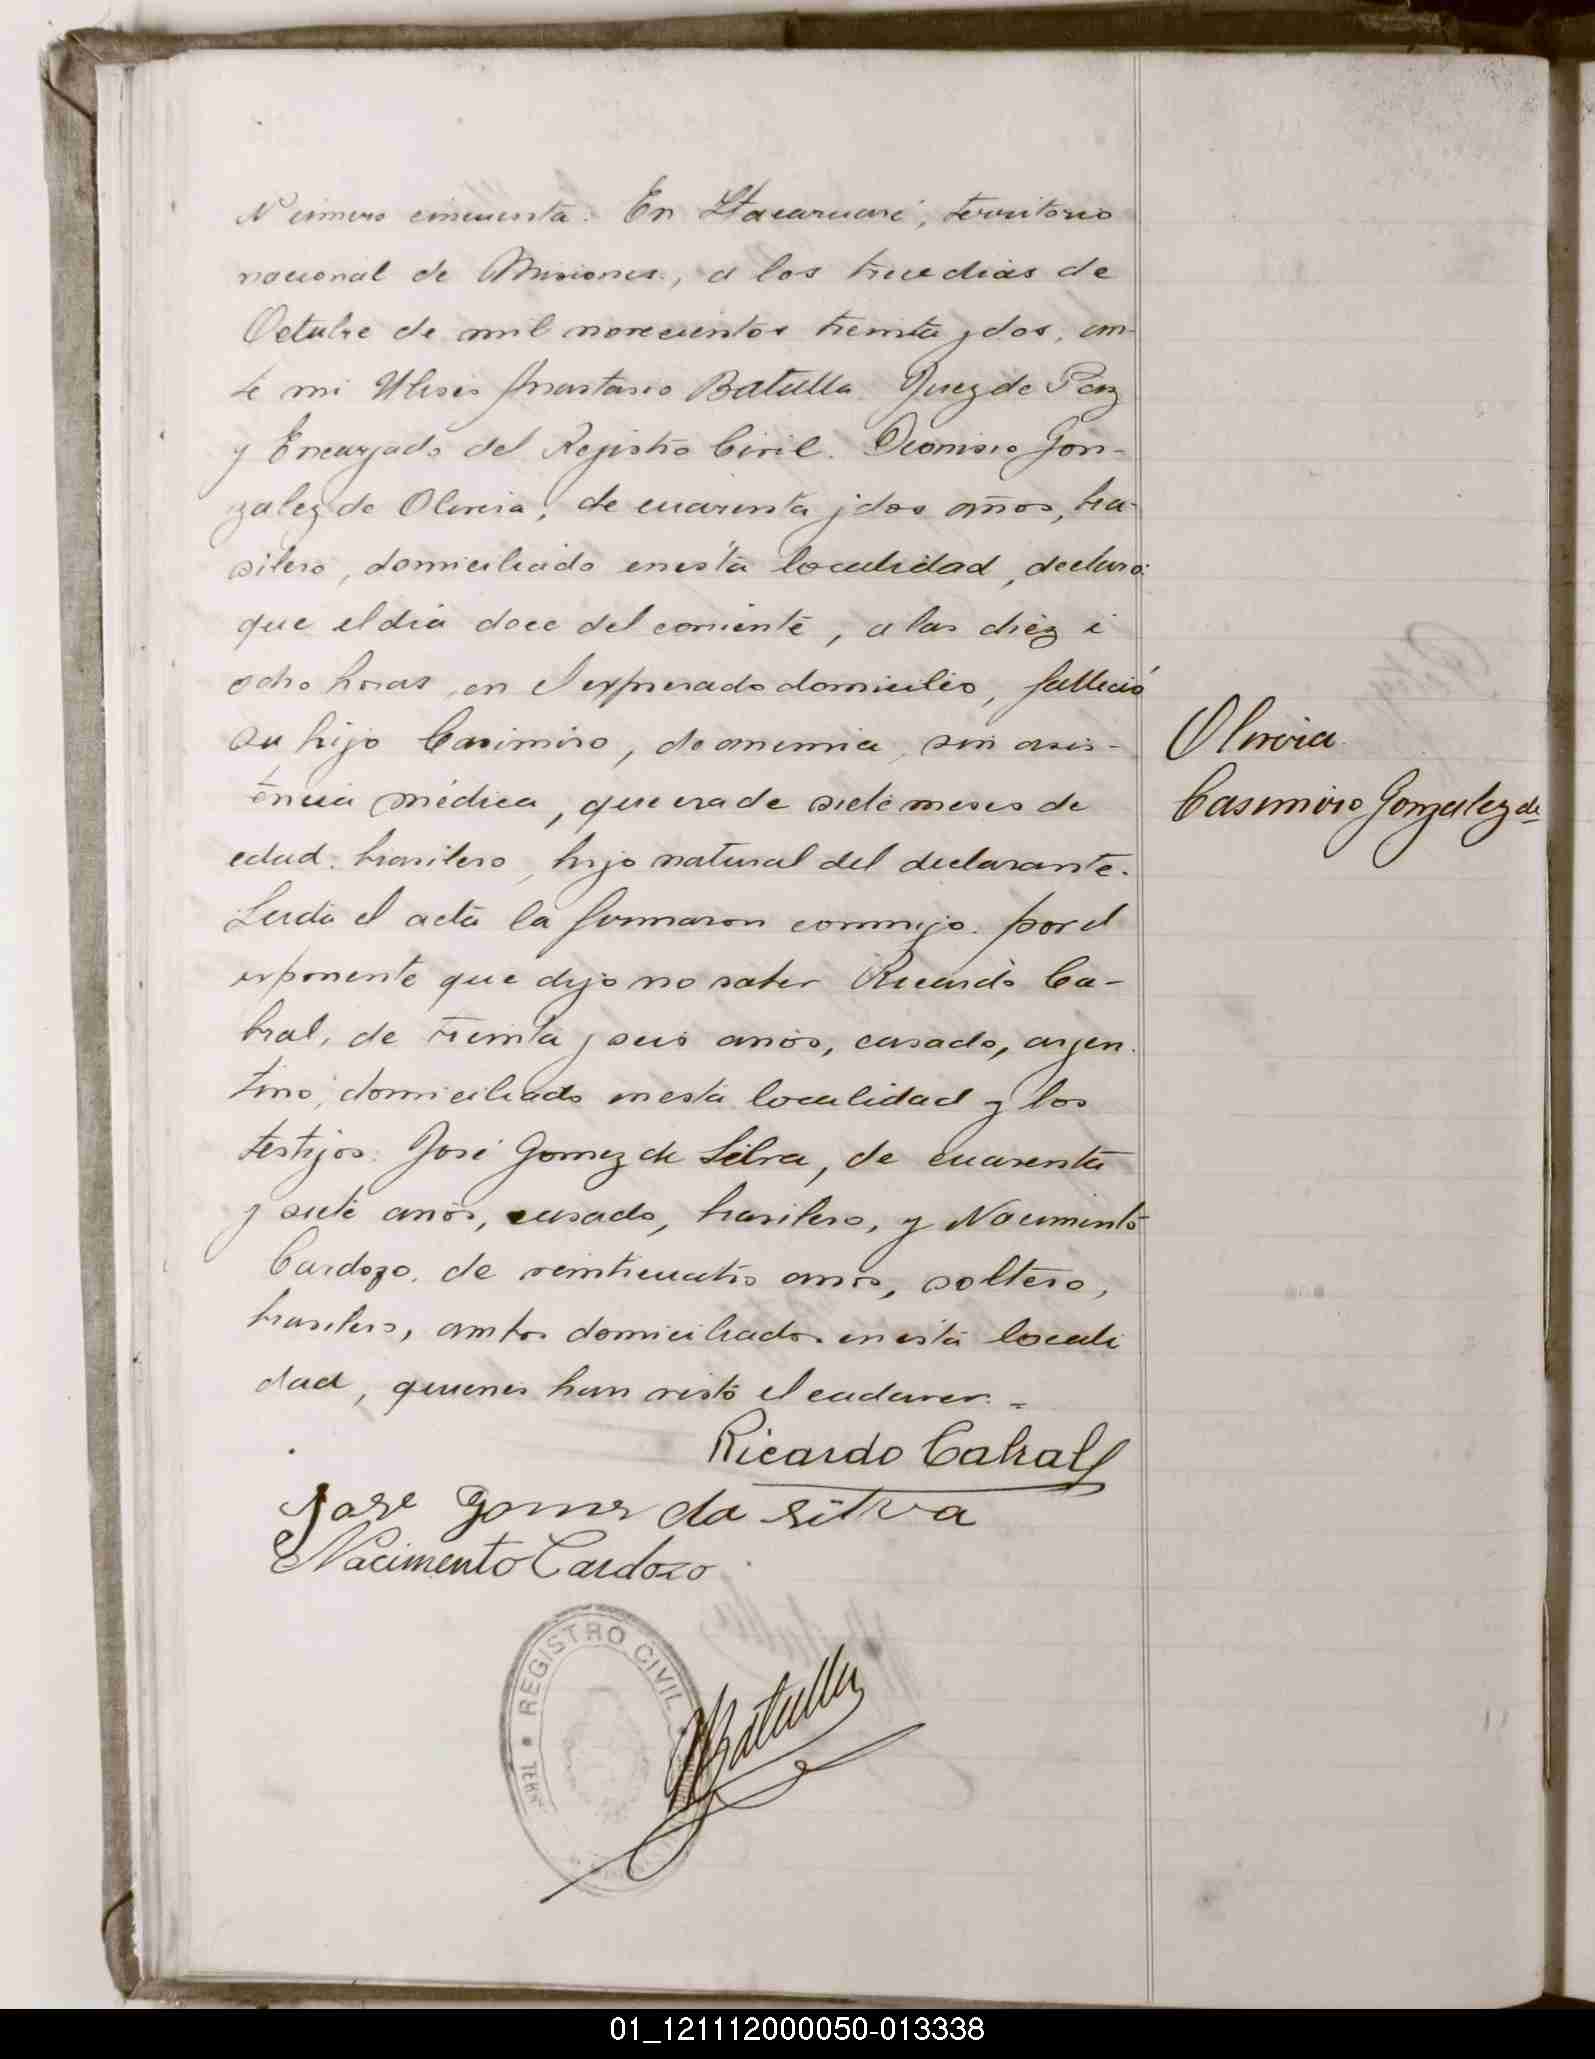 Número cincuenta. En Itacaruaré, territorio
nacional de Misiones, a los trece dias de
Octubre de mil novecientos treinta y dos, an-
te mi Ulises Anastasio Batulla Juez de Paz
y Encargado del Registro Civil. Dionisio Gon-
zalez de Oliveia, de cuarenta y dos años, bra-
silero, domiciliado en esta localidad, declaró:
que el dia doce del corriente, a las diez i
ocho horas, en el expresado domicilio, falleció
su hijo Casimiro, de anemia, sin asis-
tencia médica, que era de siete meses de
edad, brasilero, hijo natural del declarante.
Leida el acta la firmaron conmigo, por el
exponente que dijo no saber Ricardo Ca-
bral, de treinta y seis años, casado, argen-
tino, domiciliado en esta localidad y los
testigos: José Gomez de Silva, de cuarenta
y siete años, casado, brasilero, y Nacimento
Cardozo, de veinticuatro años, soltero,
brasilero, ambos domiciliados en esta locali
dad, quienes han visto el cadaver. =
Oliveia
Casimiro Gonzalez de
Ricardo Cabral
Jose Gomes da silva
Nacimento Cardozo
REGISTRO CIVIL
TERR
Batulla
01_121112000050-013338